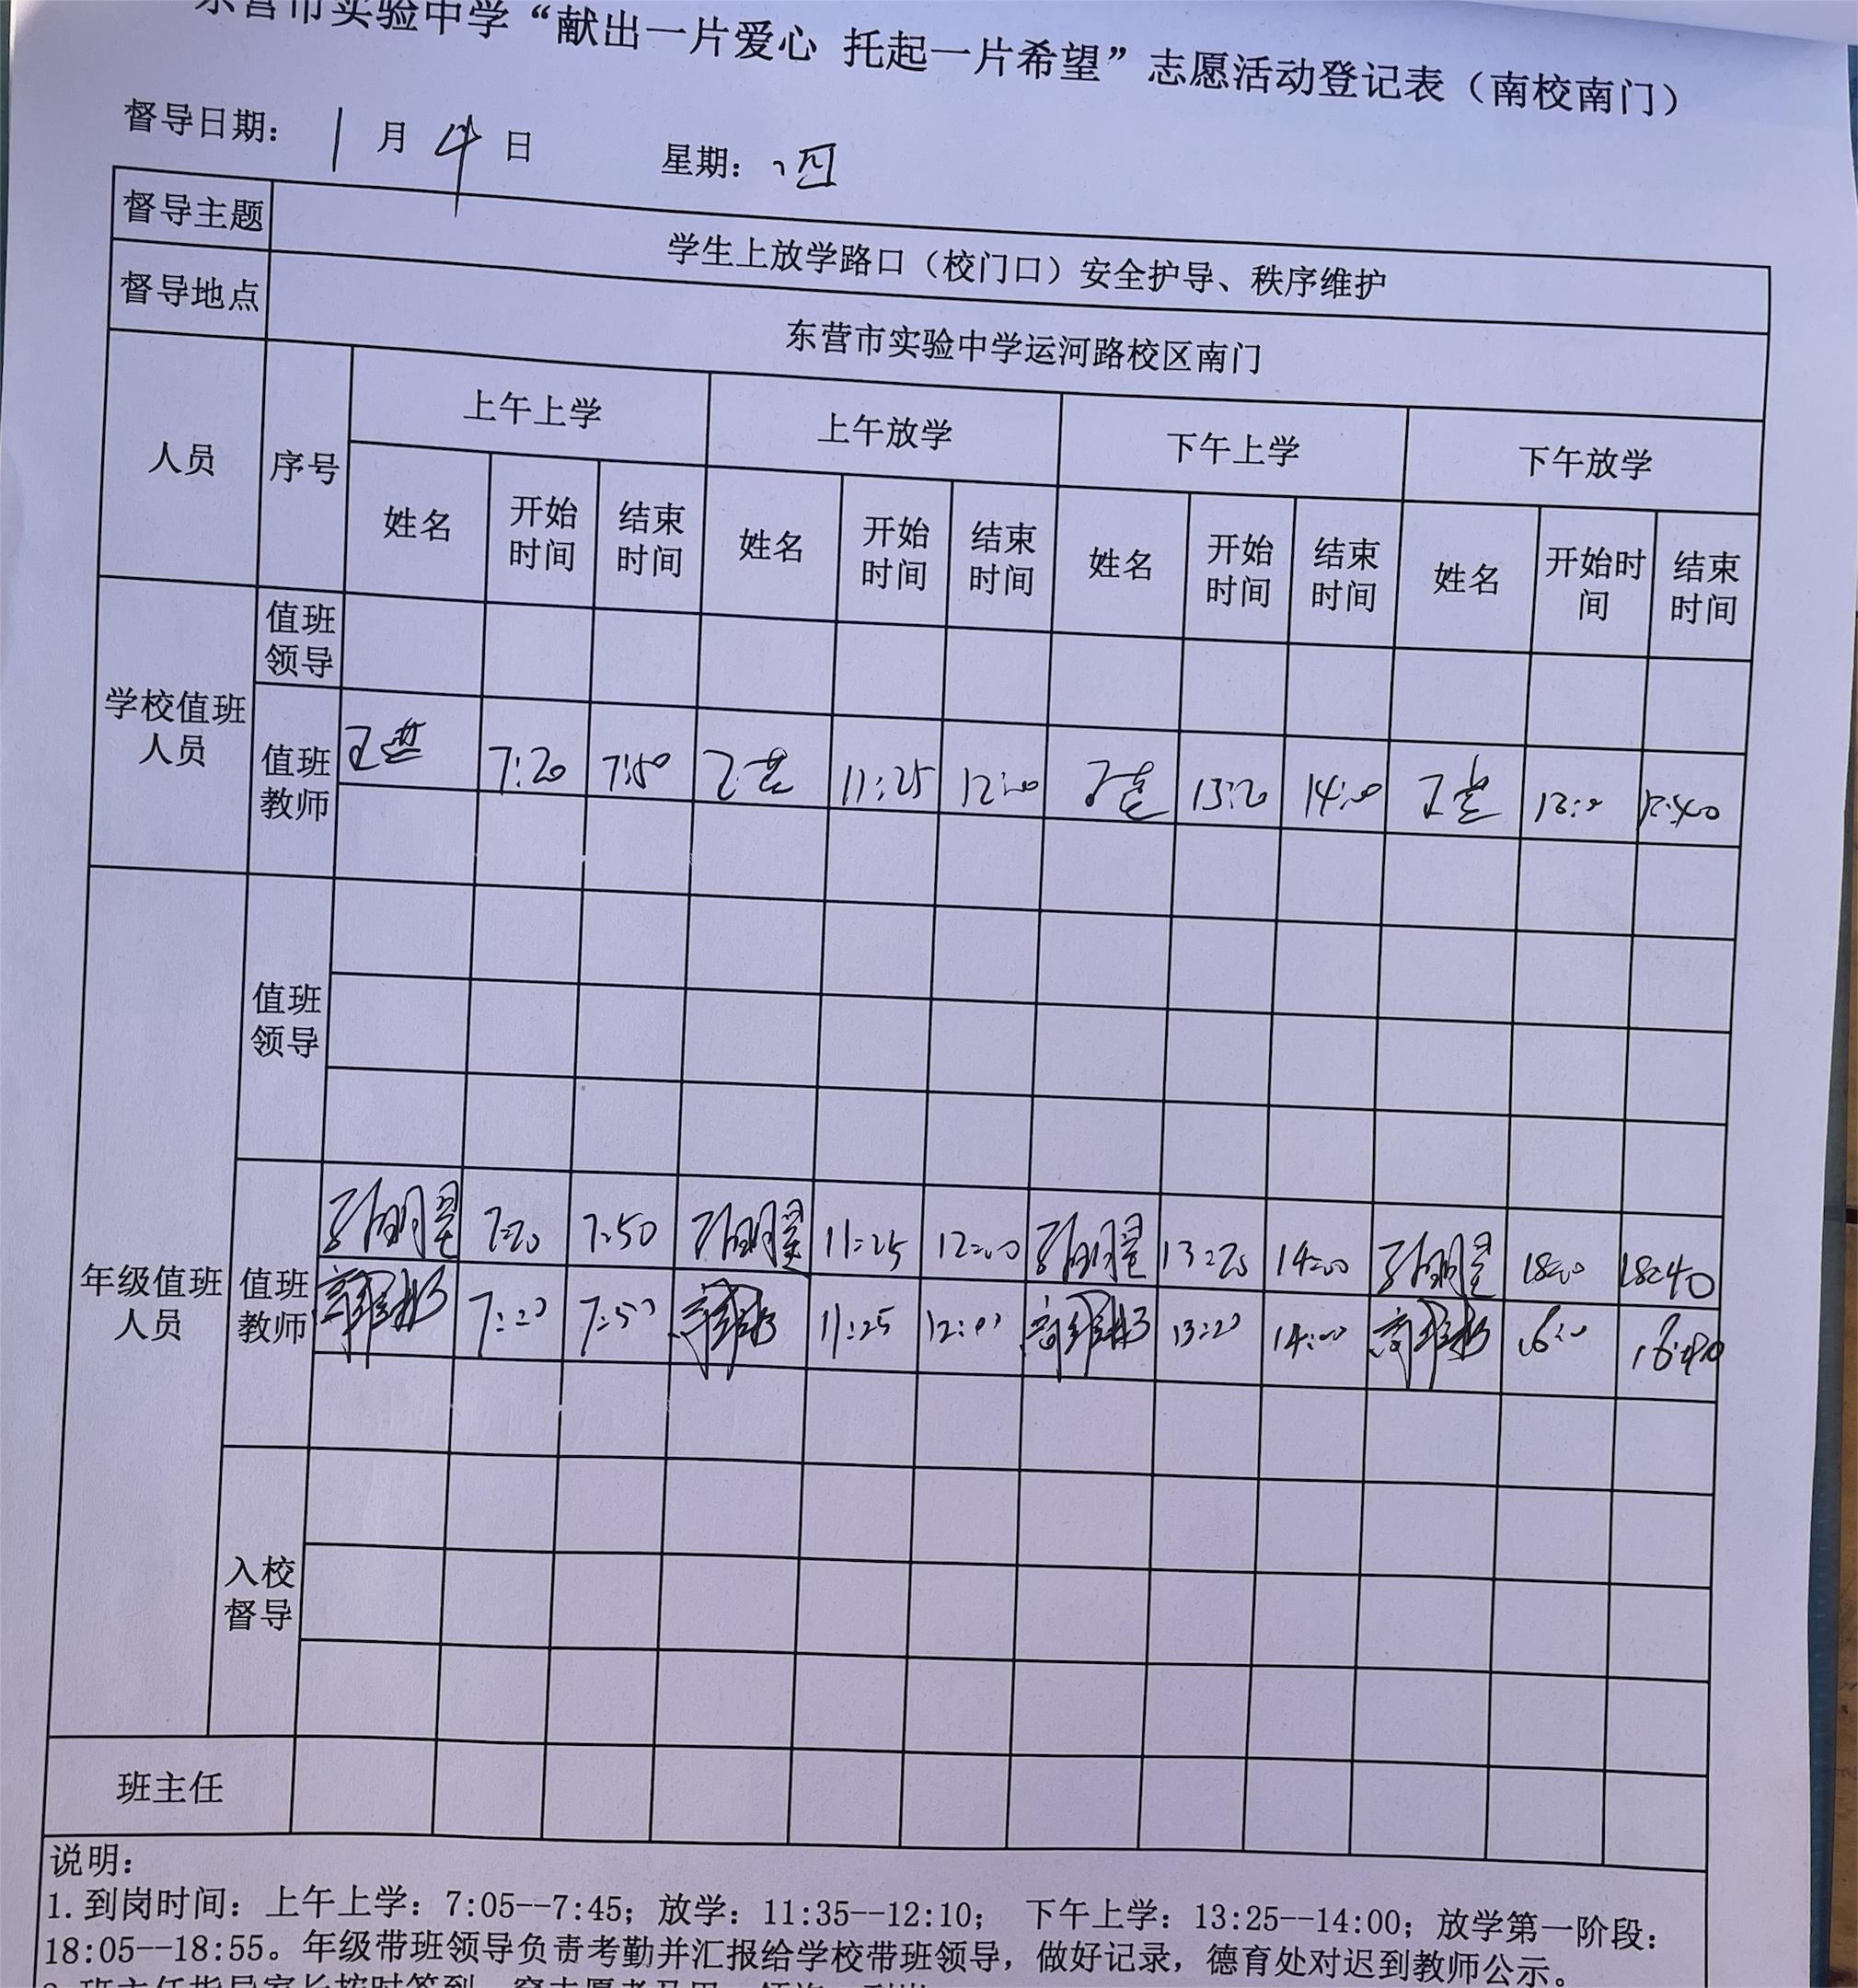 东营市实验中学“献出一片爱心 托起一片希望”志愿活动登记表（南校南门）
督导日期： 1 月 4 日 星期：四
督导主题 学生上放学路口（校门口）安全护导、秩序维护
督导地点 东营市实验中学运河路校区南门
人员 序号 上午上学 上午放学 下午上学 下午放学
姓名 开始时间 结束时间 姓名 开始时间 结束时间 姓名 开始时间 结束时间 姓名 开始时间 结束时间
学校值班人员
值班领导
值班教师 7:20 7:50 11:25 12:00 13:20 14:00
年级值班人员
值班领导
值班教师
7:20 7:50 11:25 12:00 13:20 14:00 18:00 18:40
7:20 7:50 11:25 12:00 13:20 14:00
入校督导
班主任
说明：
1. 到岗时间：上午上学：7:05--7:45；放学：11:35--12:10； 下午上学：13:25--14:00；放学第一阶段：
18:05--18:55。年级带班领导负责考勤并汇报给学校带班领导，做好记录，德育处对迟到教师公示。